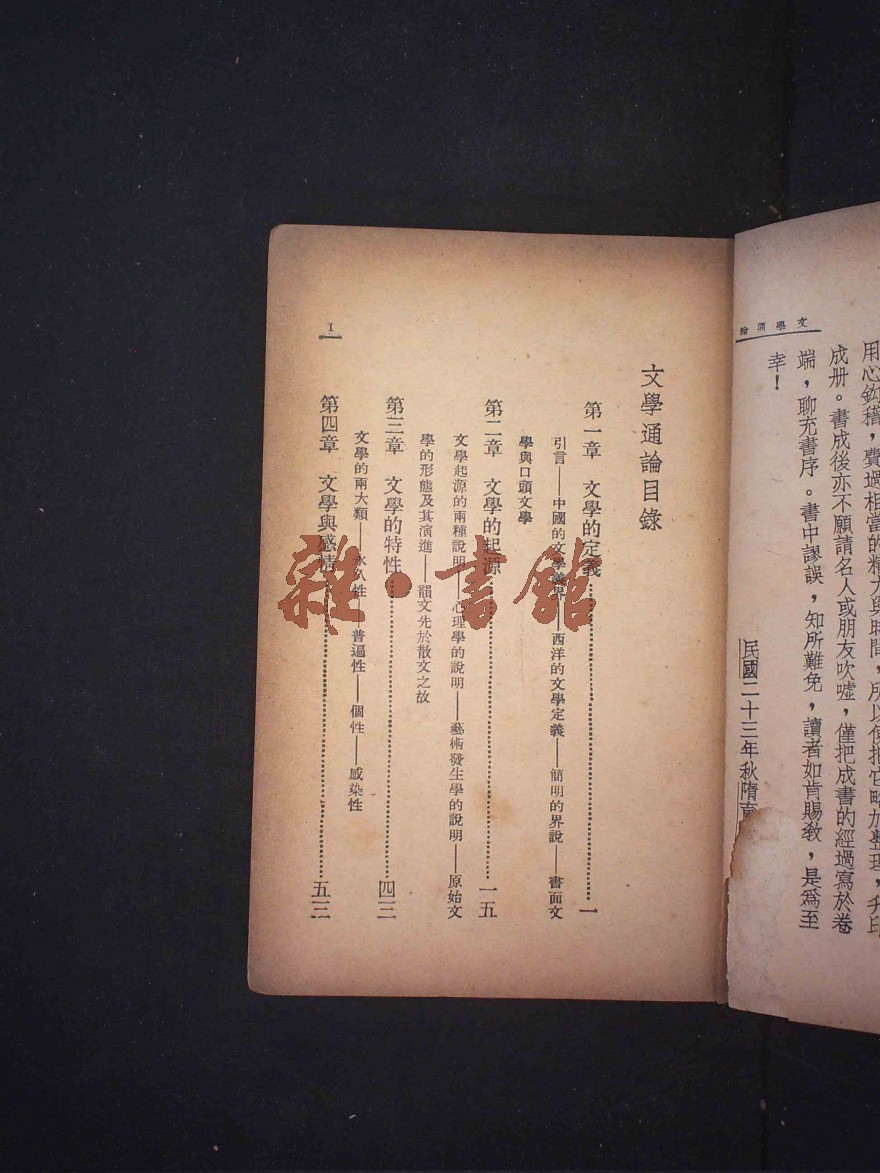 文學通論
用心鈎稽，費過相當的精力與時間，所以便把它略加整理，手印
成册。書成後亦不願請名人或朋友吹噓，僅把成書的經過寫於卷
端，聊充書序。書中謬誤，知所難免，讀者如肯賜敎，是爲至
幸！
民國二十三年秋隋育
文學通論目錄
第一章　文學的定義……一
引言——中國的文學義界——西洋的文學定義——簡明的界說——書面文
學與口頭文學
第二章　文學的起源……一五
文學起源的兩種說明——心理學的說明——藝術發生學的說明——原始文
學的形態及其演進——韻文先於散文之故
第三章　文學的特性……四三
文學的兩大類——永久性——普遍性——個性——感染性
第四章　文學與感情……五三
1
雜·書館